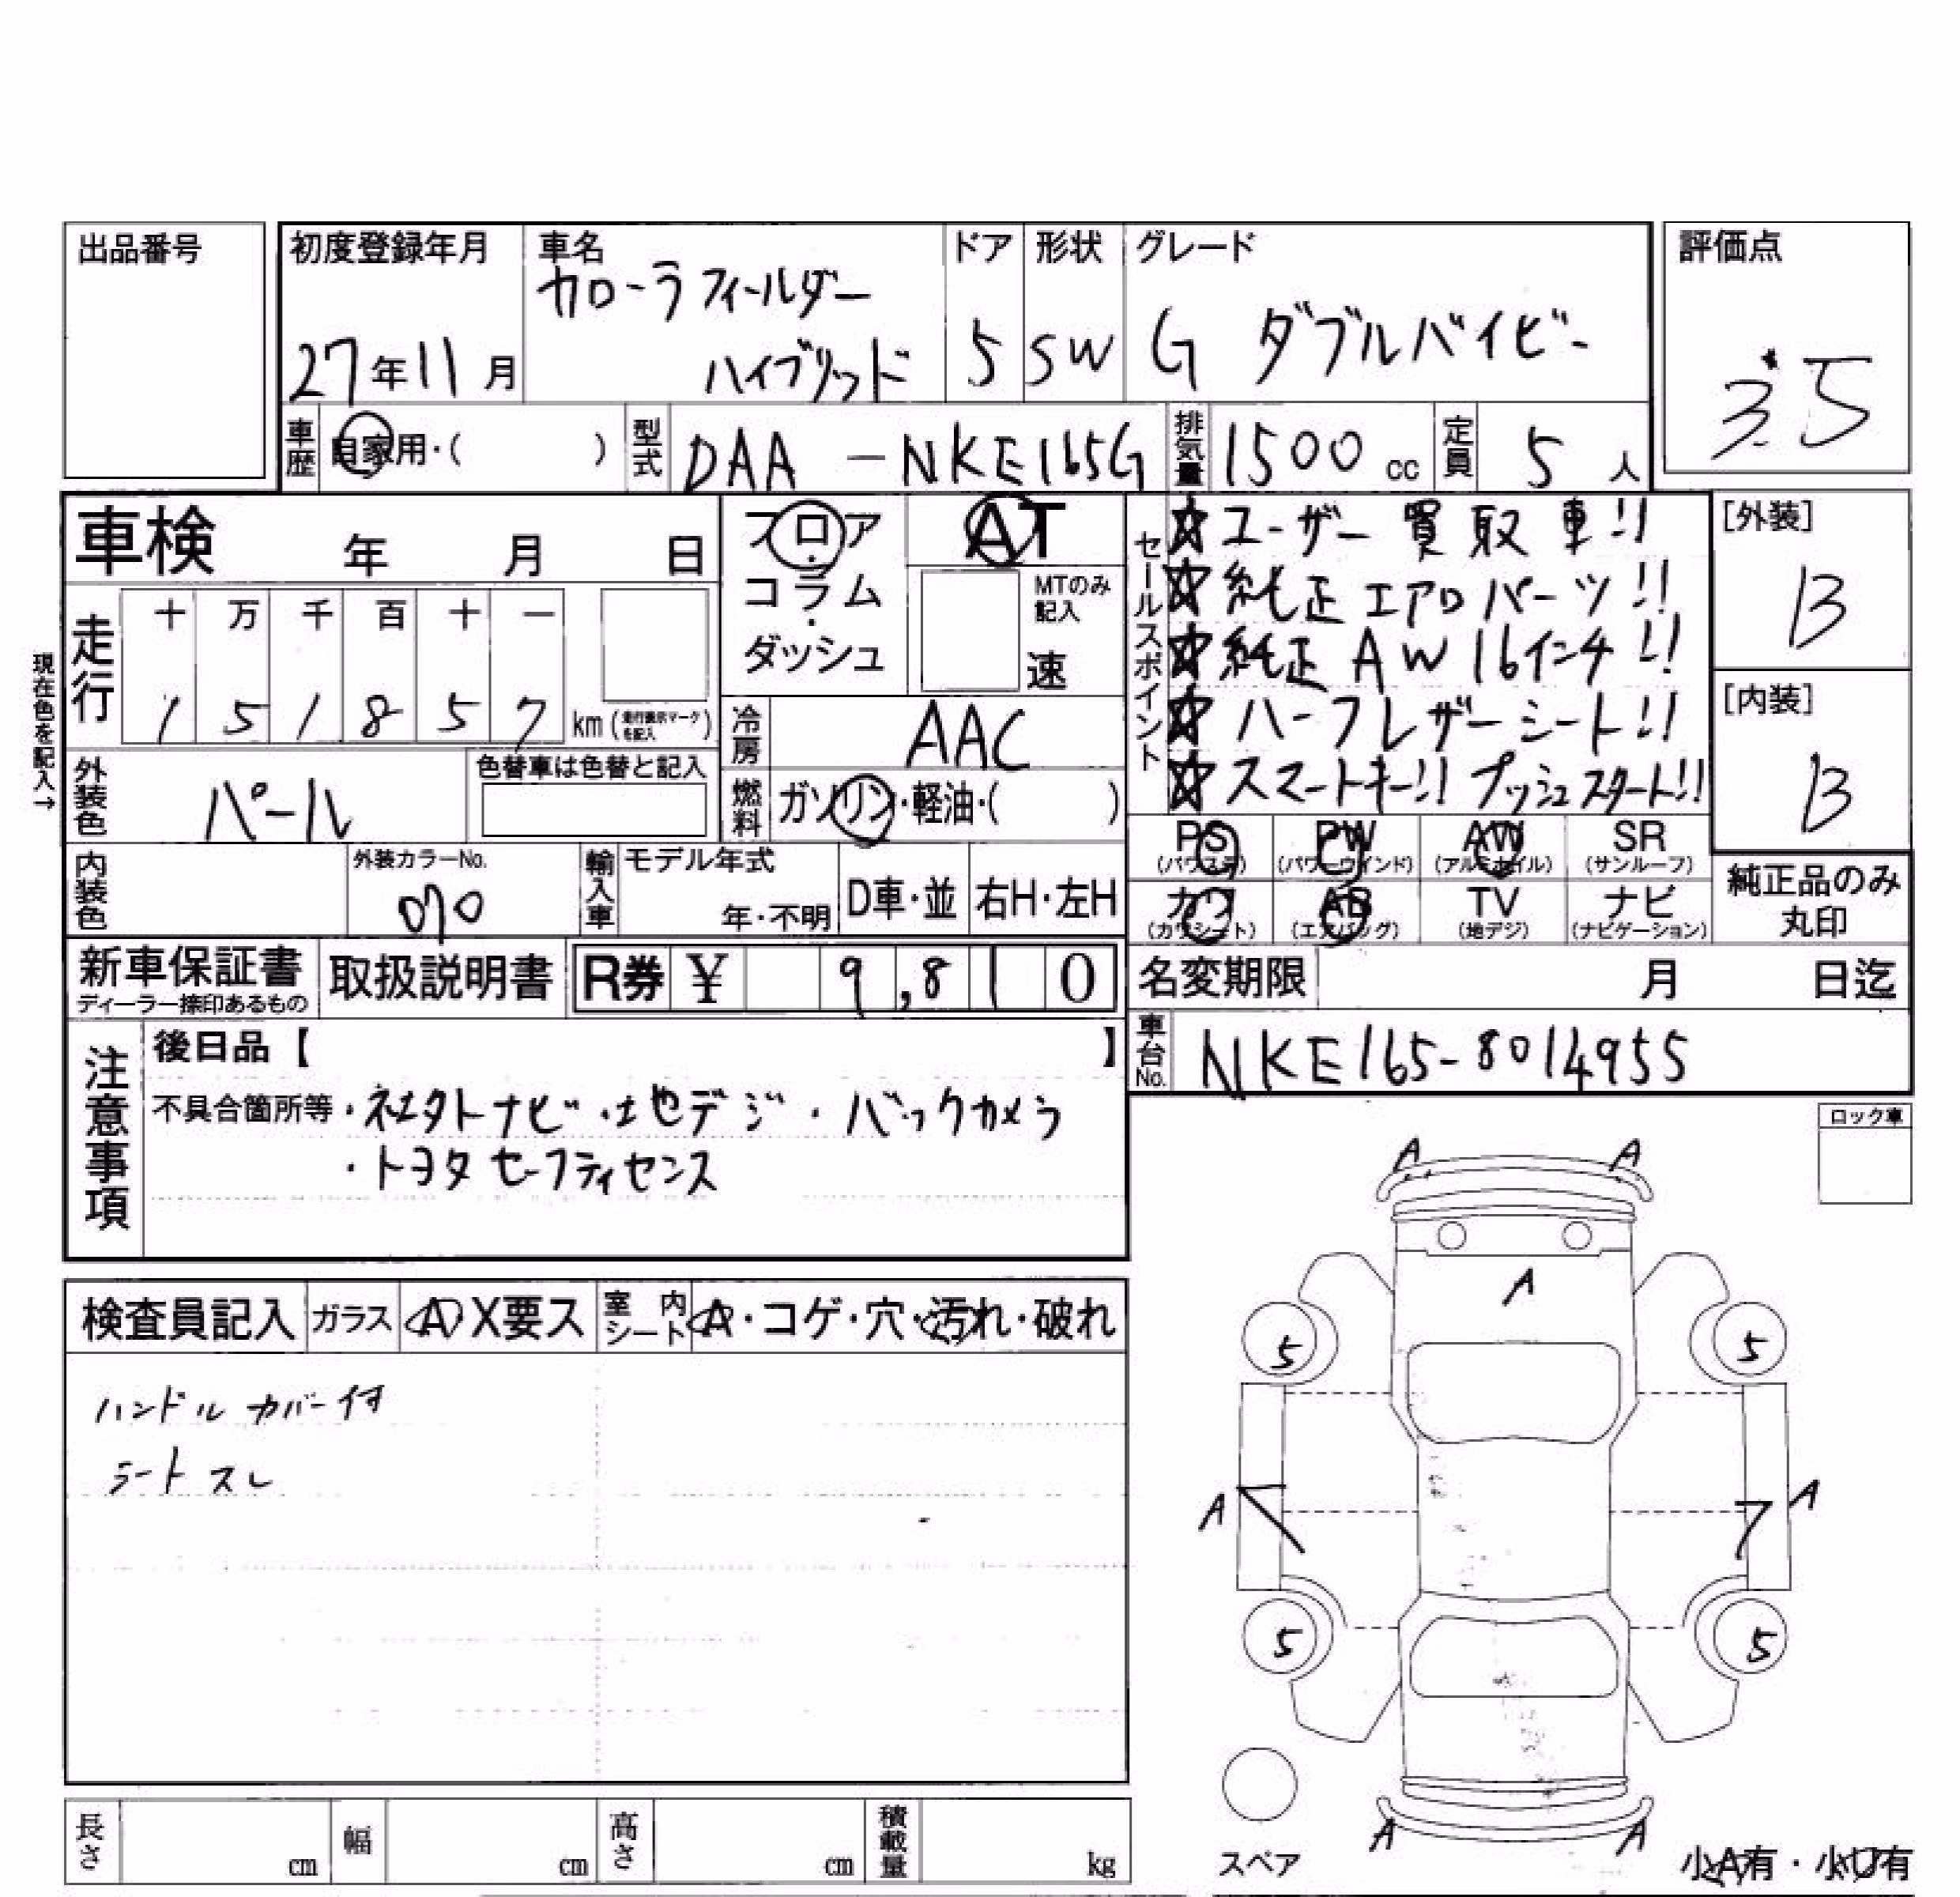 出品番号
初度登録年月
27年11月
車名
カローラフィールダー
ハイブリッド
ドア
5
形状
SW
グレード
G ダブルバイビー
評価点
3.5
車歴 自家用・( )
型式 DAA-NKE165G
排気量 1500 cc
定員 5 人
車検 年 月 日
フロア・コラム・ダッシュ
AT
MTのみ記入
速
セールスポイント
☆ユーザー買取車!!
☆純正エアロパーツ!!
☆純正AW16インチ!!
☆ハーフレザーシート!!
☆スマートキー!! プッシュスタート!!
[外装]
B
[内装]
B
現在色を記入→
走行
十 万 千 百 十 一
1 5 1 8 5 7 km (走行表示マークを記入)
冷房 AAC
外装色 パール
色替車は色替と記入
燃料 ガソリン・軽油・( )
内装色
外装カラーNo.
070
輸入車
モデル年式
年・不明
D車・並
右H・左H
PS (パワステ)
PW (パワーウインド)
AW (アルミホイル)
SR (サンルーフ)
カワ (カワシート)
AB (エアバッグ)
TV (地デジ)
ナビ (ナビゲーション)
純正品のみ
丸印
新車保証書
ディーラー捺印あるもの
取扱説明書
R券 ¥ 9,810
名変期限 月 日迄
車台No. NKE165-8014955
注意事項
後日品【 】
不具合箇所等・社外ナビ・地デジ・バックカメラ
・トヨタセーフティセンス
ロック車
検査員記入 ガラス A X要ス 室内シート A・コゲ・穴・汚れ・破れ
ハンドルカバー付
シートスレ
A A
A
5 5
A A
5 5
スペア
A A
小A有・小U有
長さ cm 幅 cm 高さ cm 積載量 kg